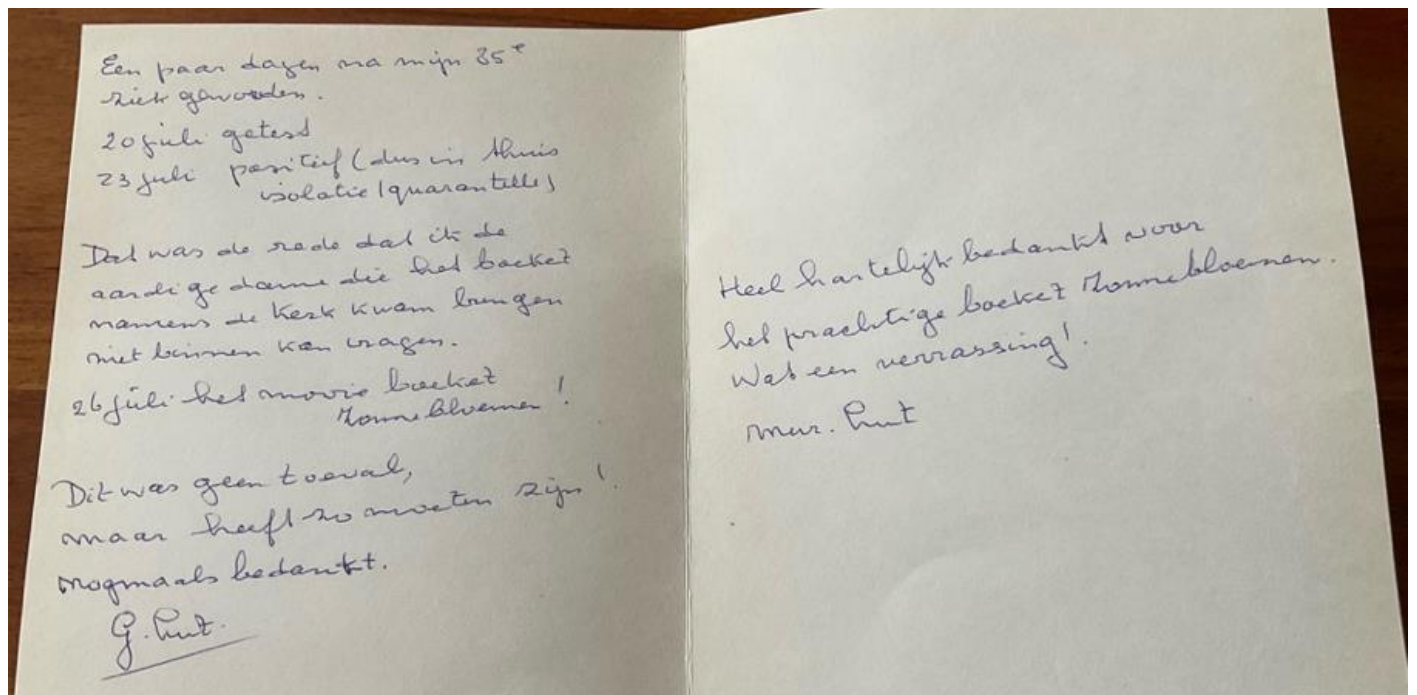 Een paar dagen na mijn 85e
ziek geworden.
20 juli getest
23 juli positief (dus in thuis
isolatie (quarantelle)
Dat was de rede dat ik de
aardige dame die het boeket
namens de Kerk kwam brengen
niet binnen kon vragen.
26 juli het mooie boeket
Zonnebloemen!
Dit was geen toeval,
maar heeft zo moeten zijn!
nogmaals bedankt.
G. Hut.
Heel hartelijk bedankt voor
het prachtige boeket Zonnebloemen.
Wat een verrassing!
mw. Hut